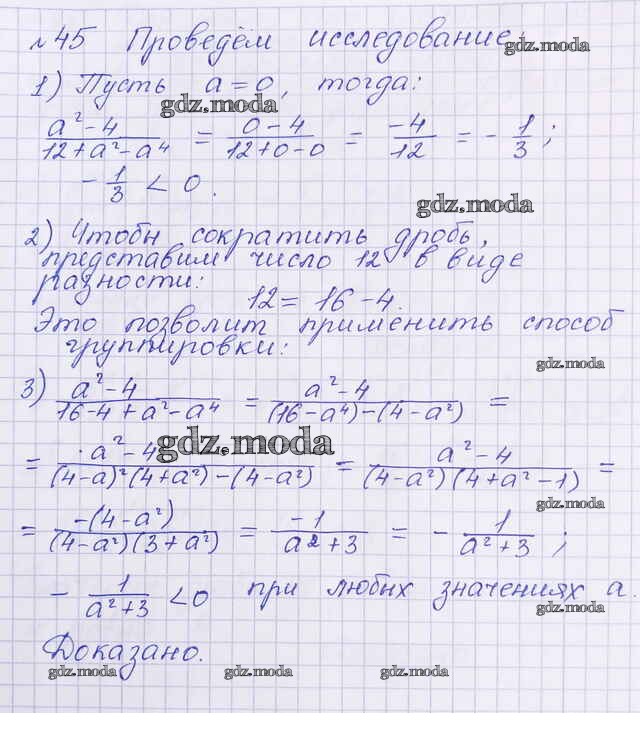 №45 Проведём исследование:
gdz.moda
1) Пусть a = 0, тогда:
gdz.moda
a² - 4 / 12 + a² - a⁴ = 0 - 4 / 12 + 0 - 0 = -4 / 12 = - 1/3 ;
- 1/3 < 0.
gdz.moda
2) Чтобы сократить дробь,
представим число 12 в виде
разности:
12 = 16 - 4.
Это позволит применить способ
группировки:
gdz.moda
3) a² - 4 / 16 - 4 + a² - a⁴ = a² - 4 / (16 - a⁴) - (4 - a²) =
gdz.moda
= a² - 4 / (4 - a)²(4 + a²) - (4 - a²) = a² - 4 / (4 - a²)(4 + a² - 1) =
gdz.moda
= -(4 - a²) / (4 - a²)(3 + a²) = -1 / a² + 3 = - 1 / a² + 3 ;
- 1 / a² + 3 < 0 при любых значениях a.
gdz.moda
Доказано.
gdz.moda gdz.moda gdz.moda